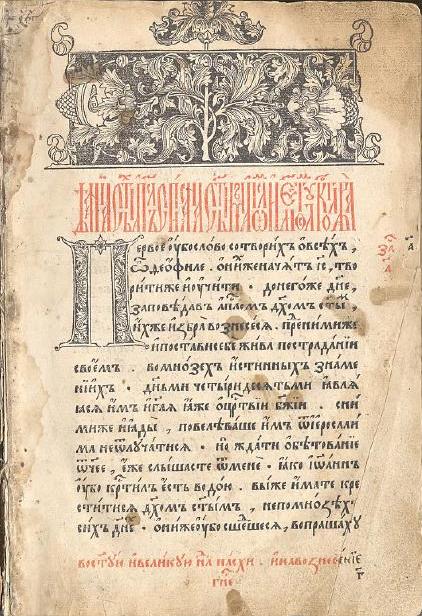 Первое оубо слово сотворихъ о всѣхъ,
ѽ ѳеофиле . о нихже начатъ і҃с, тво
рити же и оучити . донегоже дн҃е,
заповѣдавъ ап҃лѡмъ дх҃омъ ст҃ыⷨ,
ихже избра вознесесѧ . пред ними же
и постави себе жива по страданїи
своемъ . во мнозех истинныхъ знаме
нїихъ . дньми четыридесѧтьми ꙗвлѧ
ꙗсѧ имъ и гл҃ѧ ꙗже о црⷭтвїи бж҃їи . с ни
ми же и ꙗды, повелѣваше имъ ѿ іерⷭали
ма не ѿлучатисѧ . но ждати обѣтованїе
ѿч҃ее, еже слышасте ѿ мене . ꙗко іѡаннъ
оубо крⷭтилъ есть водою . вы же имате кре
ститисѧ дх҃омъ ст҃ымъ, не по мнозѣхъ
сихъ дн҃ехъ . они же оубо сшедшесѧ, вопрашаху
во ст҃ую и великую нⷣлю пасхи . и на вознесенїе
гн҃е .